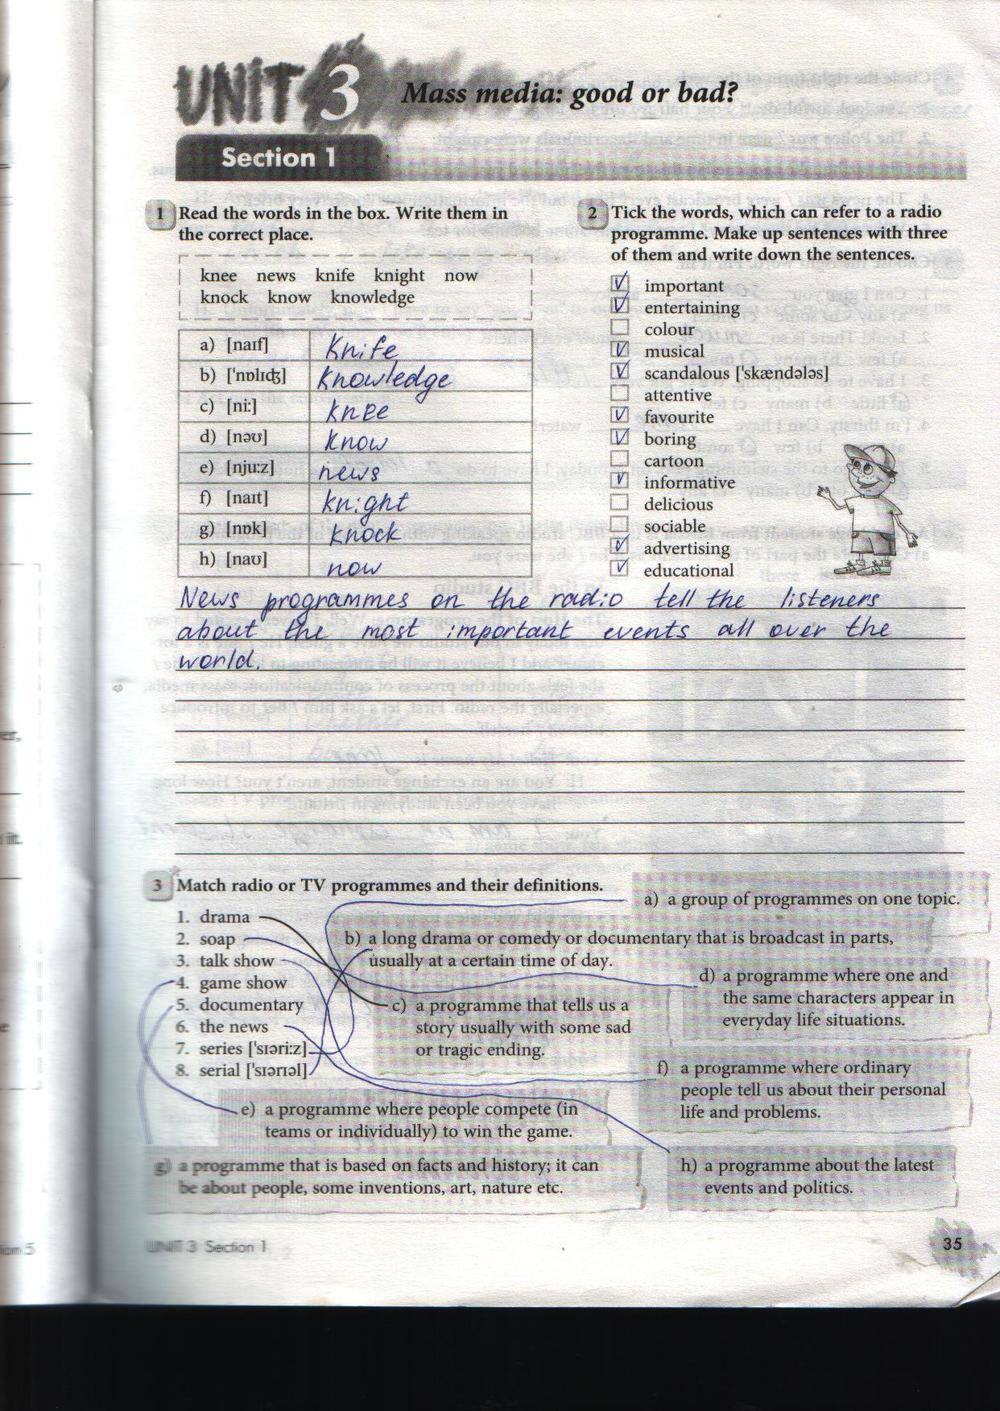 UNIT 3 Mass media: good or bad?
Section 1
1 Read the words in the box. Write them in
the correct place.
knee news knife knight now
knock know knowledge
a) [naɪf] knife
b) ['nɒlɪdʒ] knowledge
c) [ni:] knee
d) [nəʊ] know
e) [nju:z] news
f) [naɪt] knight
g) [nɒk] knock
h) [naʊ] now
2 Tick the words, which can refer to a radio
programme. Make up sentences with three
of them and write down the sentences.
important
entertaining
colour
musical
scandalous ['skændələs]
attentive
favourite
boring
cartoon
informative
delicious
sociable
advertising
educational
News programmes on the radio tell the listeners
about the most important events all over the
world.
3 Match radio or TV programmes and their definitions.
1. drama
2. soap
3. talk show
4. game show
5. documentary
6. the news
7. series ['sɪəri:z]
8. serial ['sɪərɪəl]
a) a group of programmes on one topic.
b) a long drama or comedy or documentary that is broadcast in parts,
usually at a certain time of day.
c) a programme that tells us a
story usually with some sad
or tragic ending.
d) a programme where one and
the same characters appear in
everyday life situations.
e) a programme where people compete (in
teams or individually) to win the game.
f) a programme where ordinary
people tell us about their personal
life and problems.
g) a programme that is based on facts and history; it can
be about people, some inventions, art, nature etc.
h) a programme about the latest
events and politics.
UNIT 3 Section 1
35